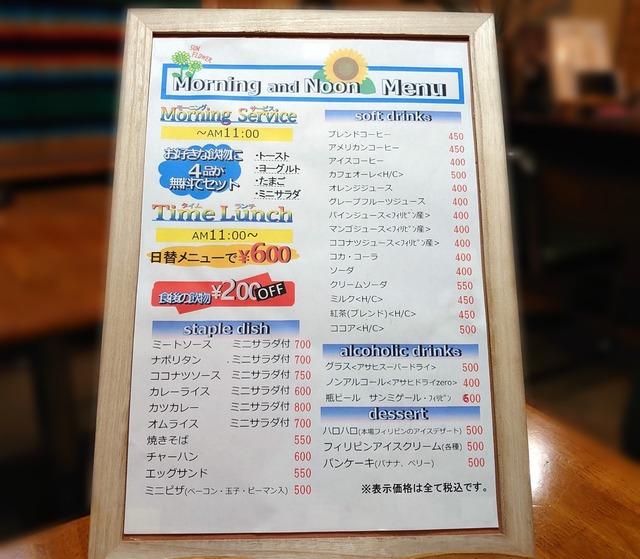 SUN FLOWER
Morning and Noon Menu
モーニング サービス
Morning Service
～AM11:00
お好きな飲物に
4品が
無料でセット
・トースト
・ヨーグルト
・たまご
・ミニサラダ
タイム ランチ
Time Lunch
AM11:00～
日替メニューで¥600
食後の飲物 ¥200 OFF
staple dish
ミートソース ミニサラダ付 700
ナポリタン ミニサラダ付 700
ココナツソース ミニサラダ付 750
カレーライス ミニサラダ付 600
カツカレー ミニサラダ付 800
オムライス ミニサラダ付 700
焼きそば 550
チャーハン 600
エッグサンド 550
ミニピザ(ベーコン・玉子・ピーマン入) 500
soft drinks
ブレンドコーヒー 450
アメリカンコーヒー 450
アイスコーヒー 400
カフェオーレ<H/C> 500
オレンジジュース 400
グレープフルーツジュース 400
パインジュース<フィリピン産> 400
マンゴジュース<フィリピン産> 400
ココナツジュース<フィリピン産> 400
コカ・コーラ 400
ソーダ 400
クリームソーダ 550
ミルク<H/C> 450
紅茶(ブレンド)<H/C> 450
ココア<H/C> 500
alcoholic drinks
グラス<アサヒスーパードライ> 500
ノンアルコール<アサヒドライzero> 400
瓶ビール サンミゲール・フィリピン 600
dessert
ハロハロ(本場フィリピンのアイスデザート) 500
フィリピンアイスクリーム(各種) 500
パンケーキ(バナナ、ベリー) 500
※表示価格は全て税込です。